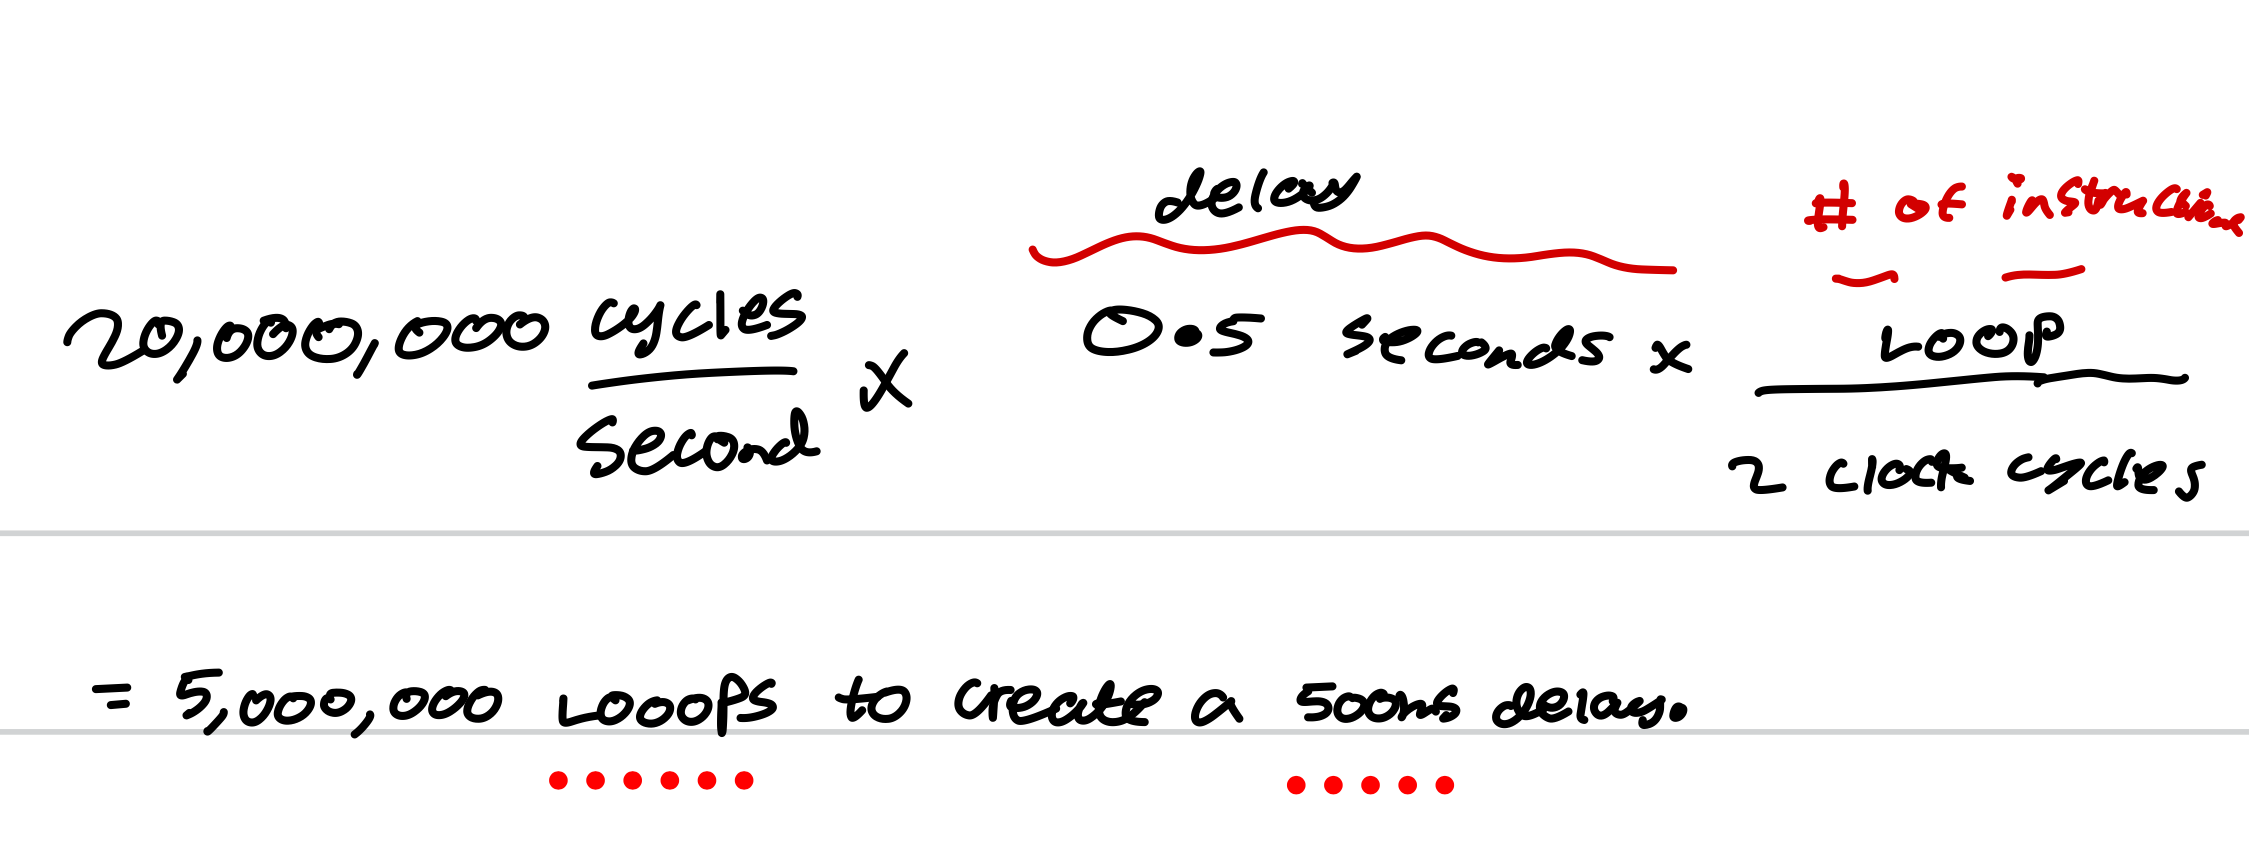 delay
# of instructions
20,000,000 cycles / second x 0.5 seconds x Loop / 2 clock cycles
= 5,000,000 Looops to create a 500ms delay.